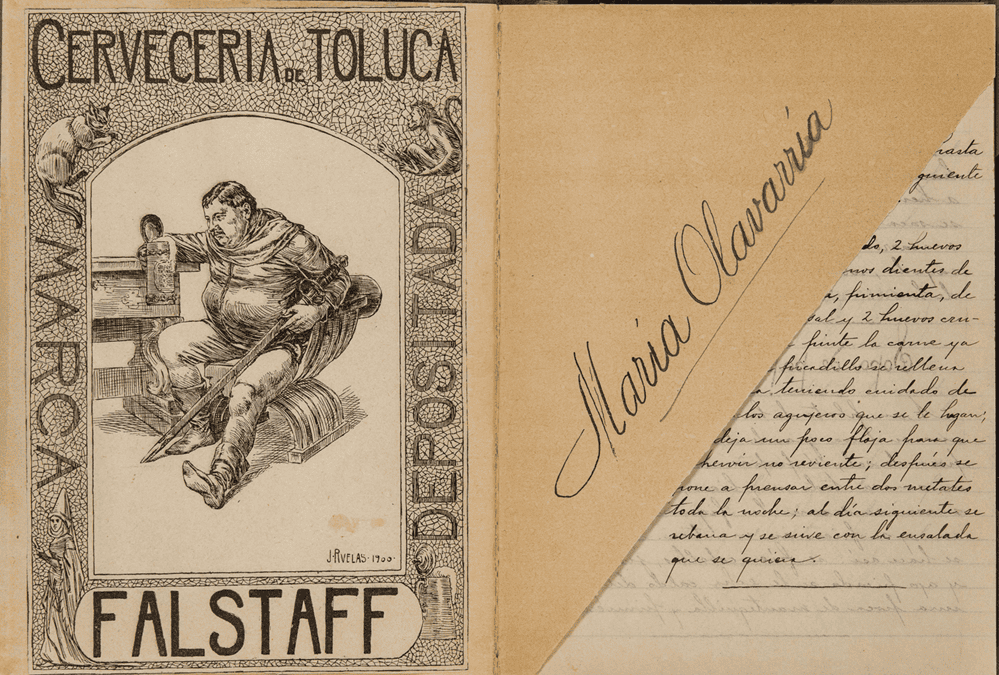 CERVECERIA DE TOLUCA
MARCA
DEPOSITADA
J. RUELAS · 1900 ·
FALSTAFF
María Olavarría
hasta
guiente
do, 2 huevos
nos dientes de
a, pimienta, de
sal y 2 huevos cru-
pinte la carne ya
picadillo se rellena
a teniendo cuidado de
los agujeros que se le hagan,
deja un poco floja para que
hervir no reviente; después se
pone a prensar entre dos metates
toda la noche; al dia siguiente se
rebana y se sirve con la ensalada
que se quiera.